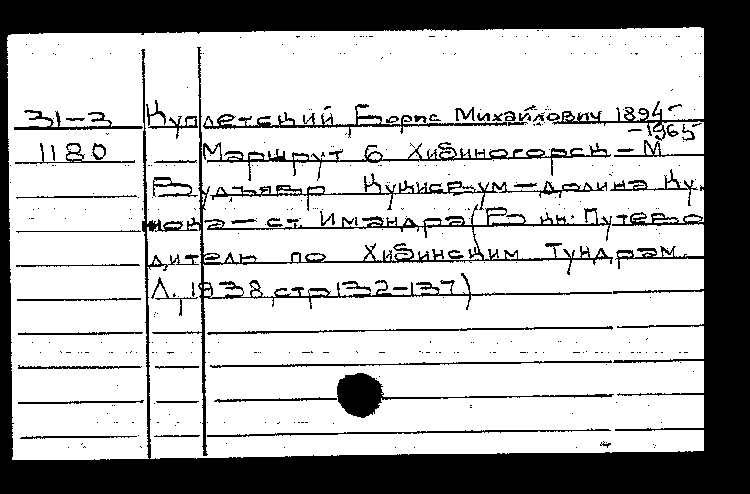 31-3 Куплетский, Борис Михайлович, 1894-
1180 -1965
Маршрут 6 Хибиногорск - М.
Вудъявр Кукисвум - долина Ку-
ниока - ст. Имандра (В кн: Путево-
дитель по Хибинским Тундрам.
Л., 1938, стр 132-137)